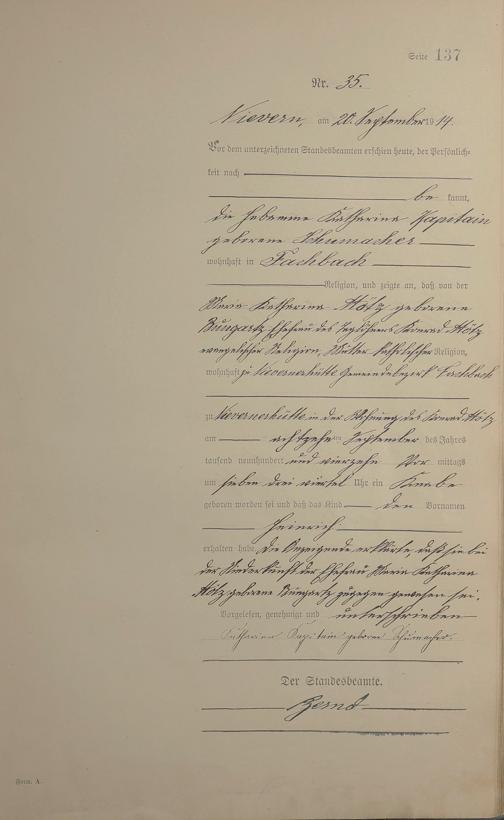 Seite 137
Nr. 35.
Nievern, am 20. September 1914.
Vor dem unterzeichneten Standesbeamten erschien heute, der Persönlich-
keit nach
be kannt,
die Hebamme Katharina Kapitain
geborene Schumacher
wohnhaft in Fachbach
Religion, und zeigte an, daß von der
Maria Katharina Hötz geborene
Bungartz Ehefrau des Konrad Hötz
evangelischer Religion, Mutter katholischer Religion,
wohnhaft zu Nievernerhütte Gemeindebezirk Fachbach
zu Nievernerhütte in der Wohnung des Konrad Hötz
am achtzehnten September des Jahres
tausend neunhundert und vierzehn Vor mittags
um sieben drei viertel Uhr ein Knabe
geboren worden sei und daß das Kind den Vornamen
Heinrich
erhalten habe. Die Anzeigende erklärte, daß sie bei
der Niederkunft der Ehefrau Maria Katharina
Hötz geborene Bungartz zugegen gewesen sei.
Vorgelesen, genehmigt und unterschrieben
Katharina Kapitain geborene Schumacher.
Der Standesbeamte.
Bernd
Form. A.